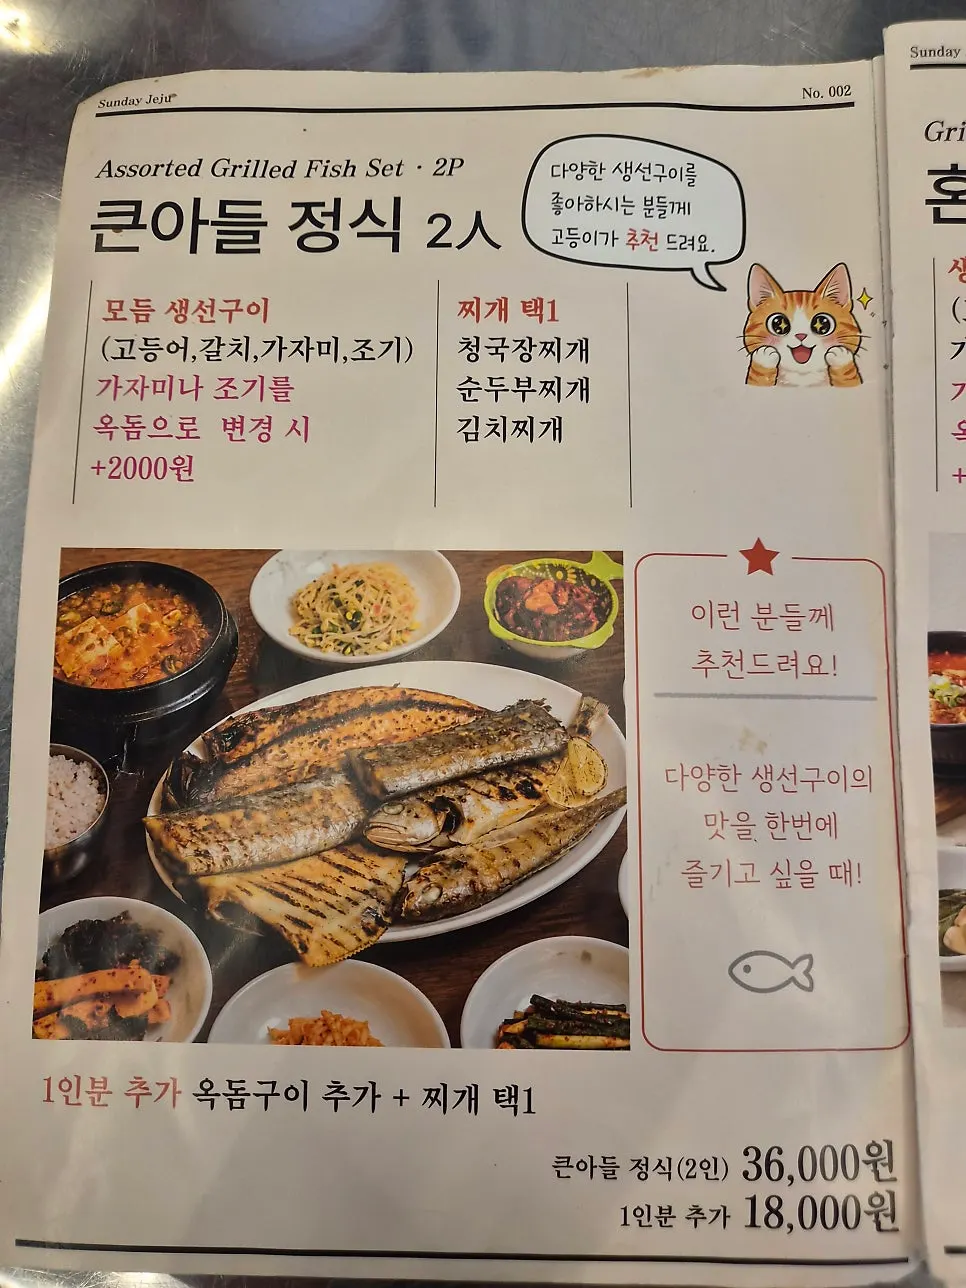 Sunday Jeju
No. 002
Assorted Grilled Fish Set · 2P
큰아들 정식 2人
다양한 생선구이를
좋아하시는 분들께
고등이가 추천 드려요.
모듬 생선구이
(고등어,갈치,가자미,조기)
가자미나 조기를
옥돔으로 변경 시
+2000원
찌개 택1
청국장찌개
순두부찌개
김치찌개
이런 분들께
추천드려요!
다양한 생선구이의
맛을 한번에
즐기고 싶을 때!
1인분 추가 옥돔구이 추가 + 찌개 택1
큰아들 정식(2인) 36,000원
1인분 추가 18,000원
Sunday